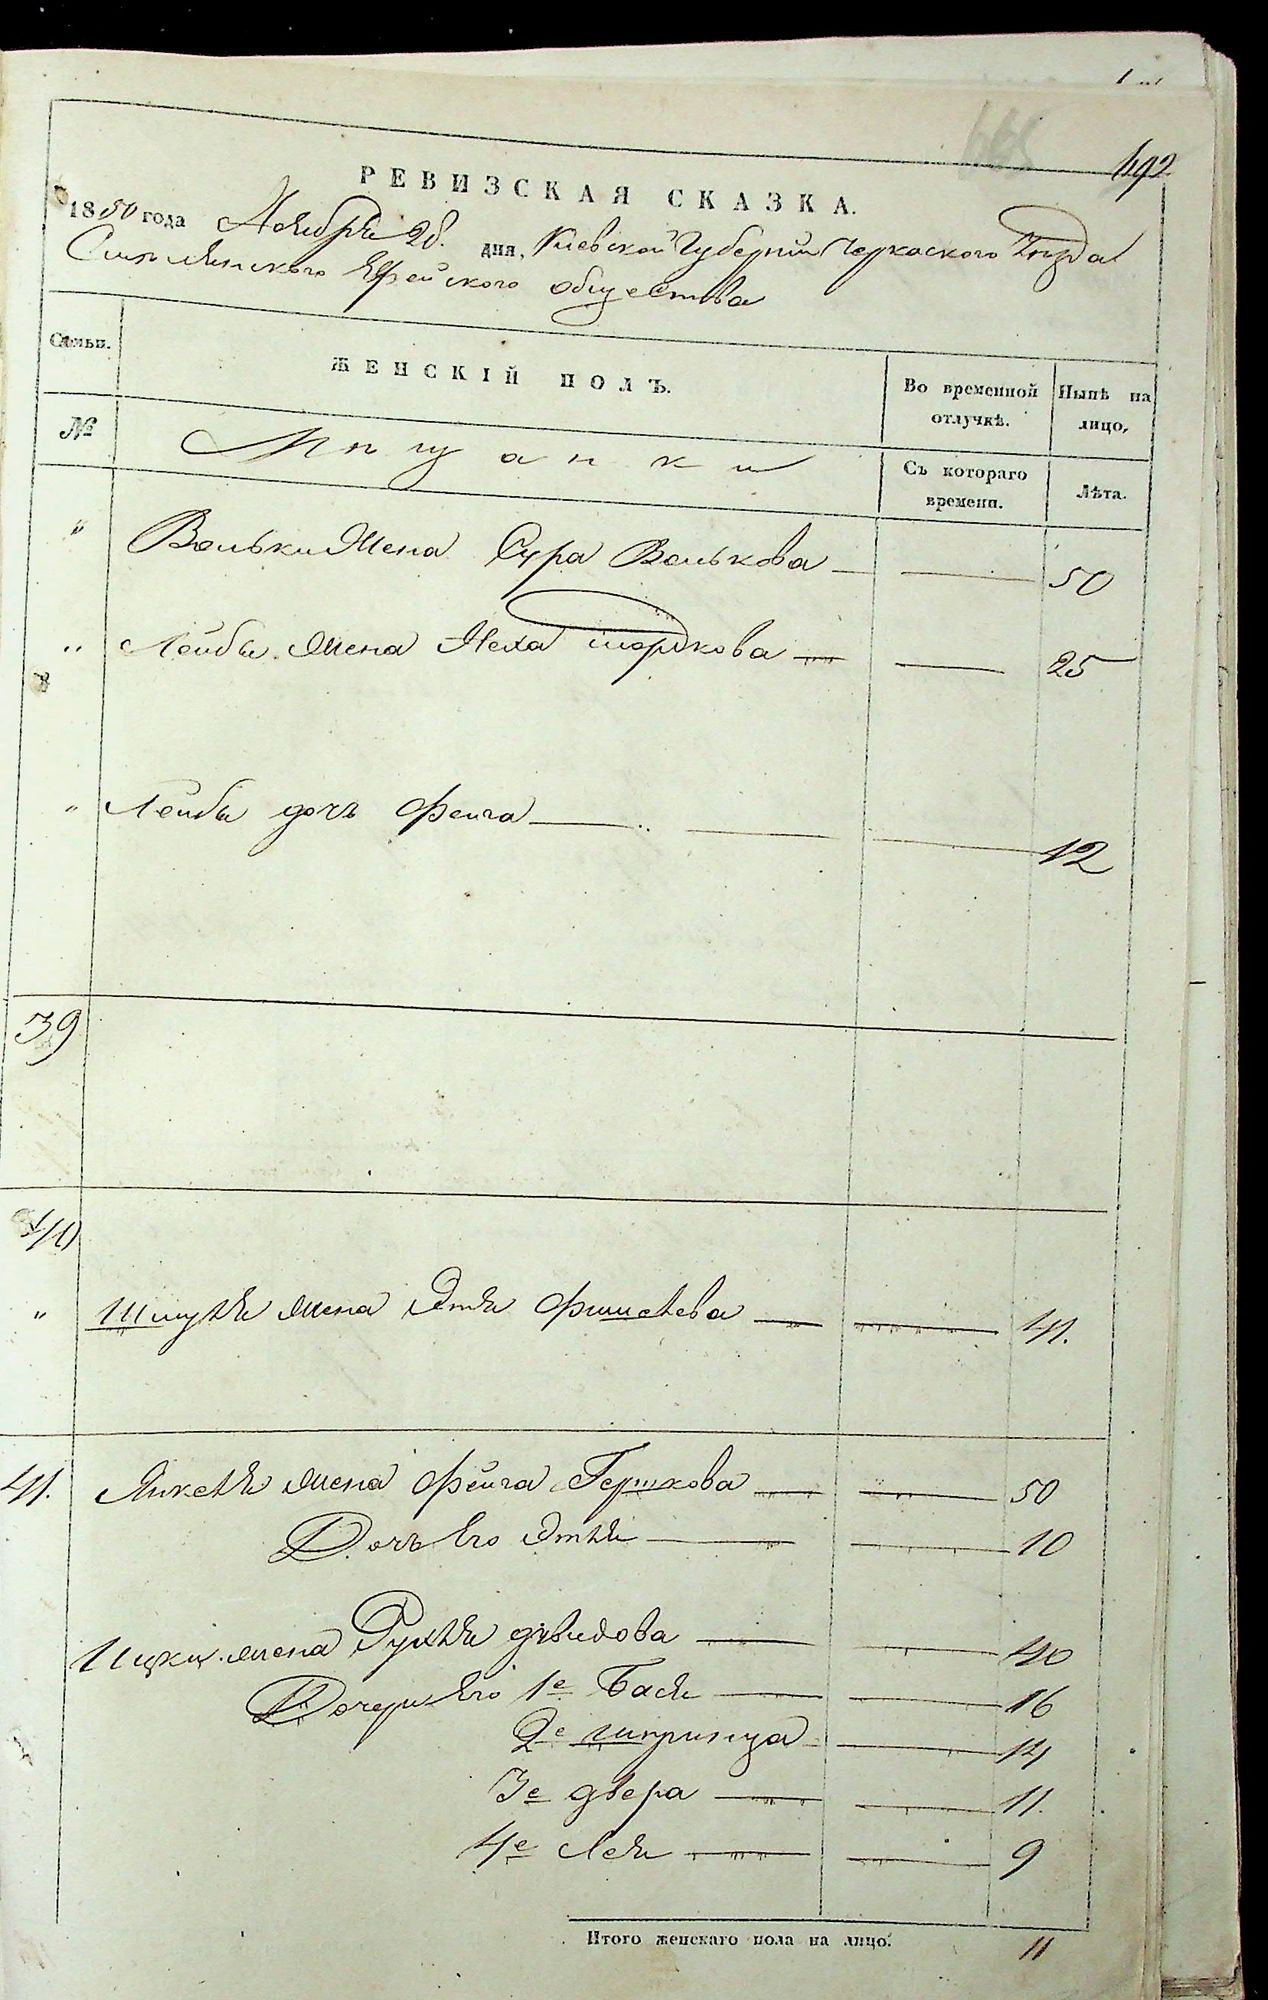 692
РЕВИЗСКАЯ СКАЗКА.
1850 года Ноября 28. дня, Киевской Губернии Черкаского Уезда
Смелянского Еврейского общества
Семьи. ЖЕНСКІЙ ПОЛЪ. Во временной отлучкѣ. Нынѣ на лицо.
№ Мещанки Съ котораго времени. Лѣта.
" Вольки Жена Сура Волькова — — 50
" Лейбы Жена Неха Шорокова — — 25
" Лейбы дочь Фейга — — 12
39
40
" Шмуля жена Этля Фишелева — — 41.
41. Янкеля жена Фейга Гершкова — — 50
Дочь Его Этля — — 10
Ицки жена Рухля давидова — — 40
Дочери Его 1е Бася — — 16
2е шпринца — 14
3е двера — — 11.
4е Лея — — 9
Итого женскаго пола на лицо. 11